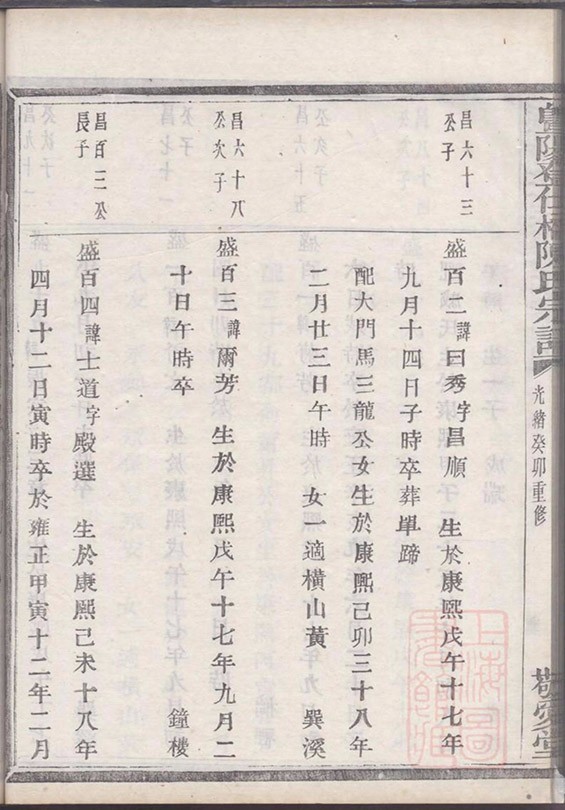 豐陽 陳氏宗譜
光緒癸卯重修
敬 堂
昌六十三
公子
盛百二諱曰秀字昌順 生於康熙戊午十七年
九月十四日子時卒葬單蹄
配大門馬三龍公女生於康熙己卯三十八年
二月廿三日午時 女一適橫山黃 巽溪
昌六十八
公次子
盛百三諱爾芳 生於康熙戊午十七年九月二
十日午時卒 鐘樓
昌百三公
長子
盛百四諱士道字殿選 生於康熙己未十八年
四月十二日寅時卒於雍正甲寅十二年二月
上海圖書館藏